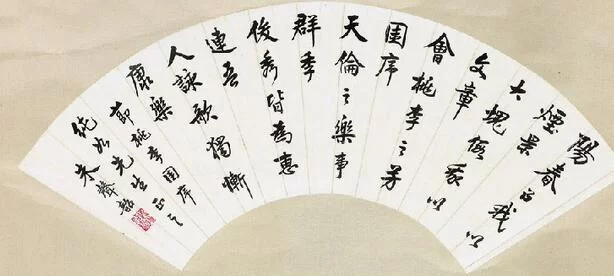 陽春召我以
煙景
大塊假我以
文章
會桃李之芳
園序
天倫之樂事
群季
俊秀皆為惠
連吾
人詠歌獨慚
康樂
節桃李園序
純如先生正之
朱聲韶